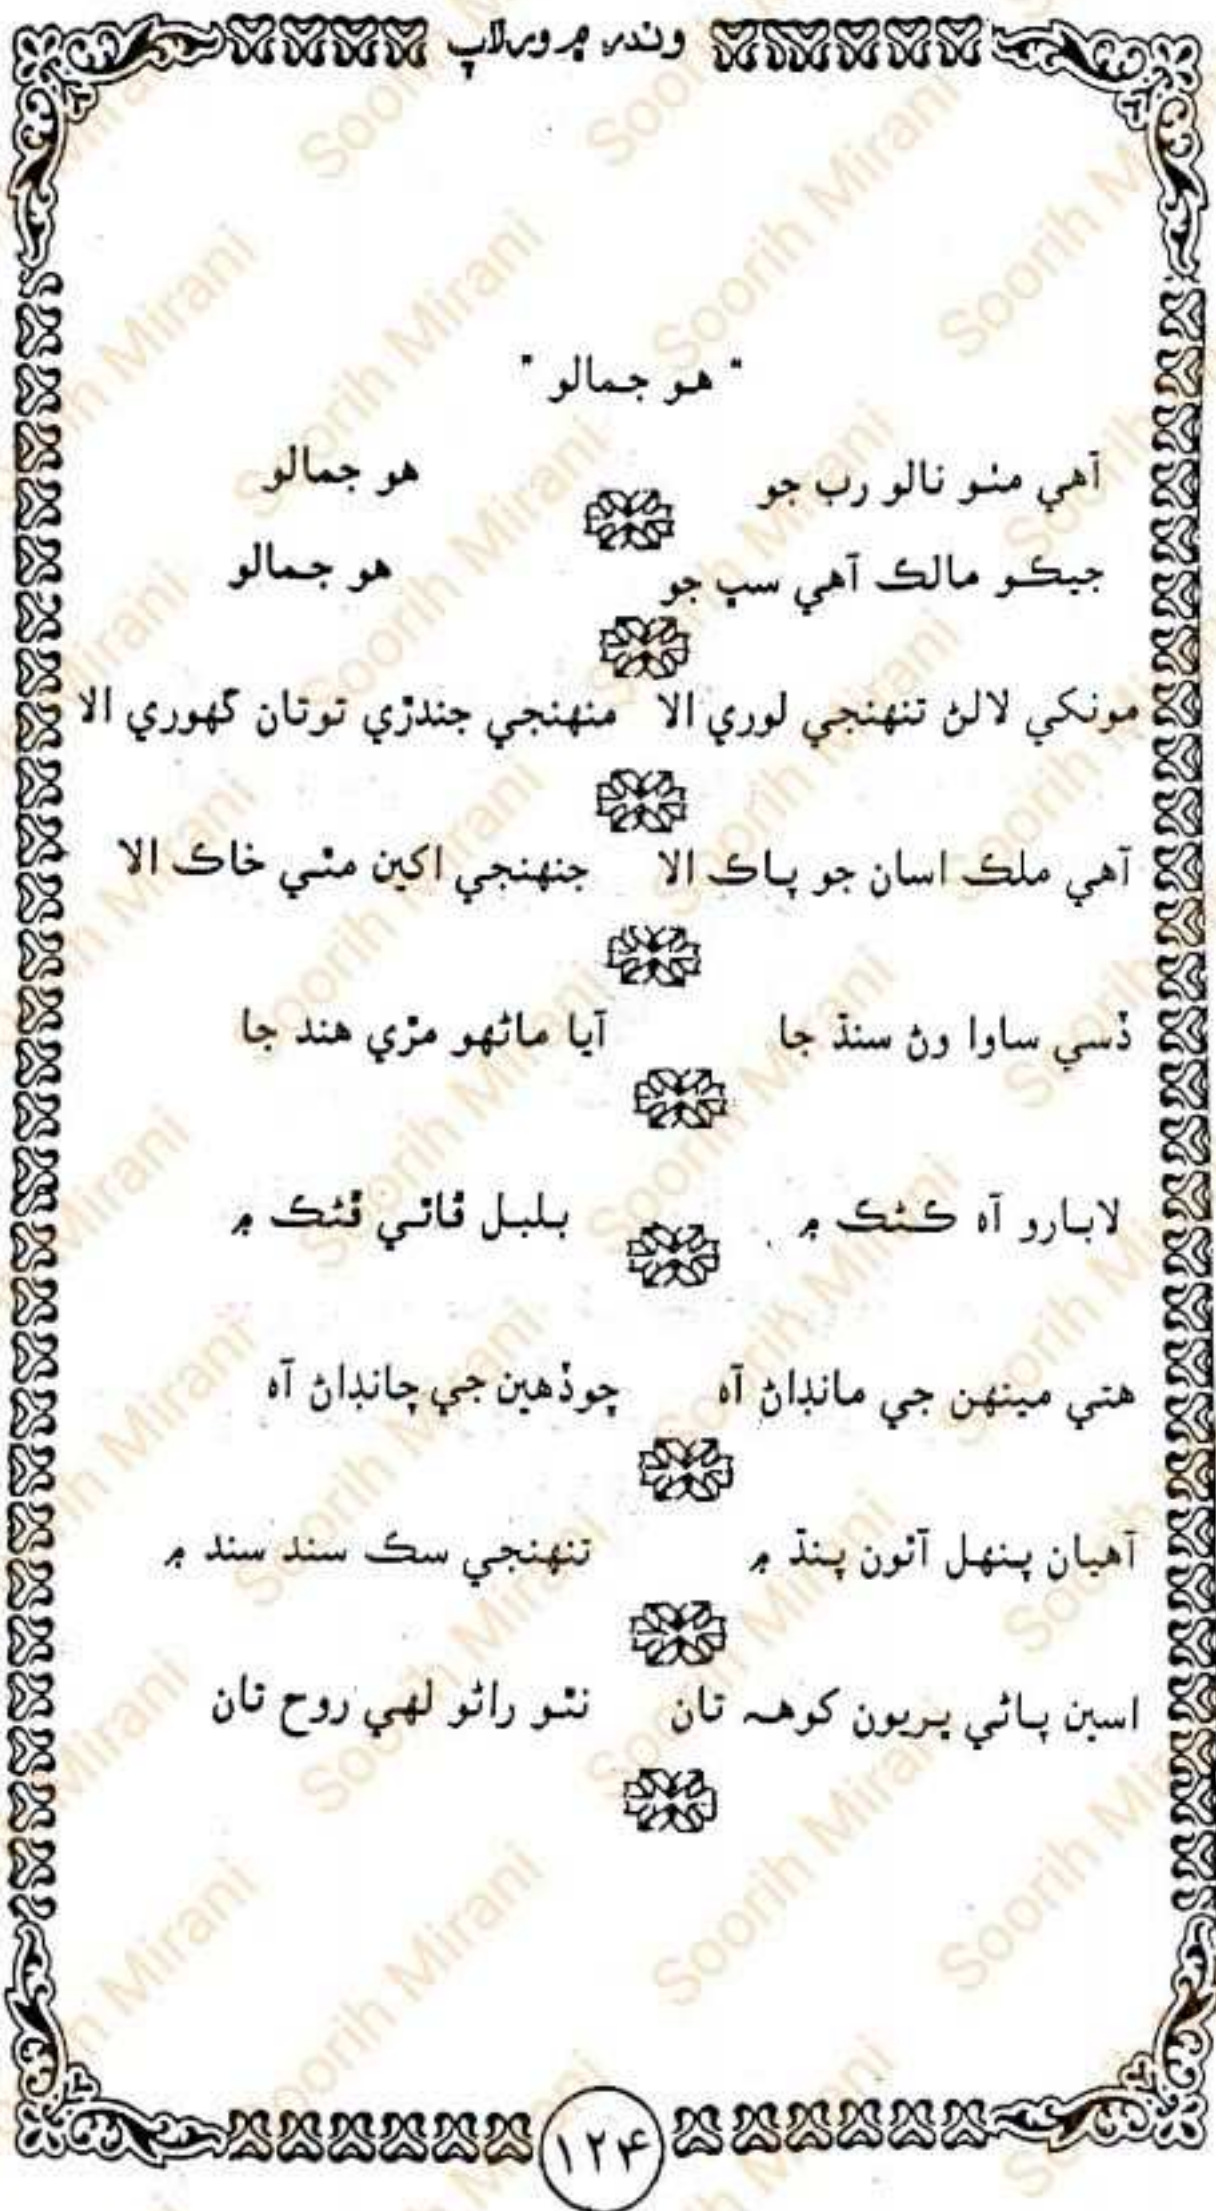 وندر ۾ ورلاپ
" هو جمالو "
آهي مٺو نالو رب جو هو جمالو
جيڪو مالڪ آهي سڀ جو هو جمالو
مونکي لالڻ تنهنجي لوري الا منهنجي جندڙي توتان گهوري الا
آهي ملڪ اسان جو پاڪ الا جنهنجي اکين مٿي خاڪ الا
ڏسي ساوا وڻ سنڌ جا آيا ماڻهو مڙي هند جا
لابارو آه ڪڻڪ ۾ بلبل ڦاٿي ڦٽڪ ۾
هتي مينهن جي مانڊاڻ آه چوڏهين جي چانڊاڻ آه
آهيان پنهل آئون پنڌ ۾ تنهنجي سڪ سنڌ سنڌ ۾
اسين پاڻي ڀريون کوهہ تان نٿو راڻو لهي روح تان
۱۲۴
Soorih Mirani